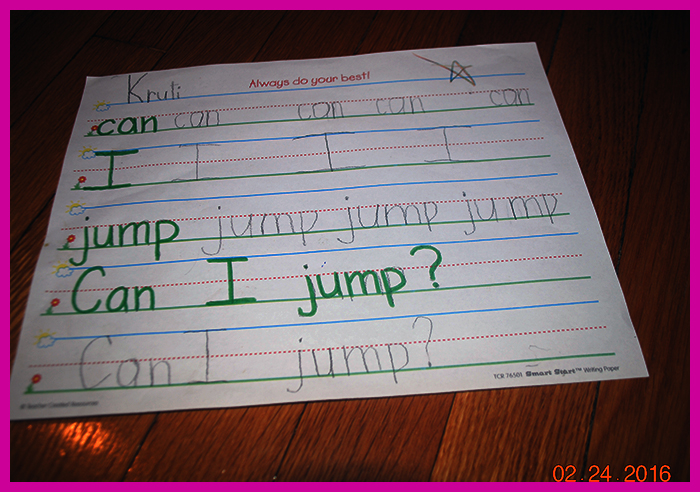 Kruli Always do your best!
can can can can can
I I I I
jump jump jump jump
Can I jump?
Can I jump?
TCR 76501 Smart Start™ Writing Paper
© Teacher Created Resources
02.24.2016